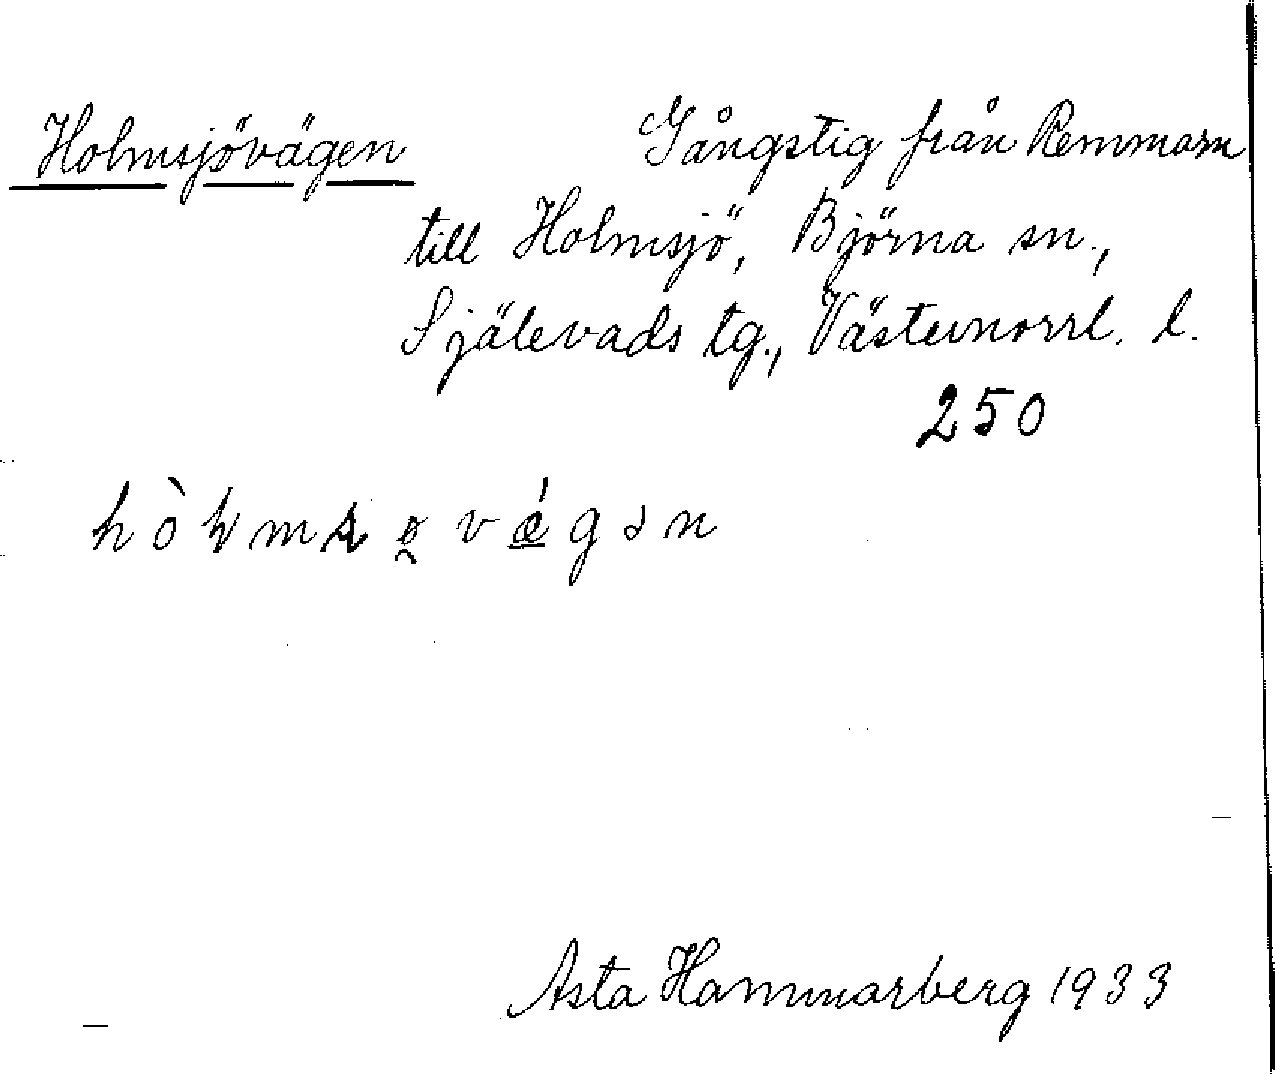 Holmsjövägen Gångstig från Remmarn
till Holmsjö, Björna sn.,
Själevads tg., Västernorrl. l.
250
Asta Hammarberg 1933